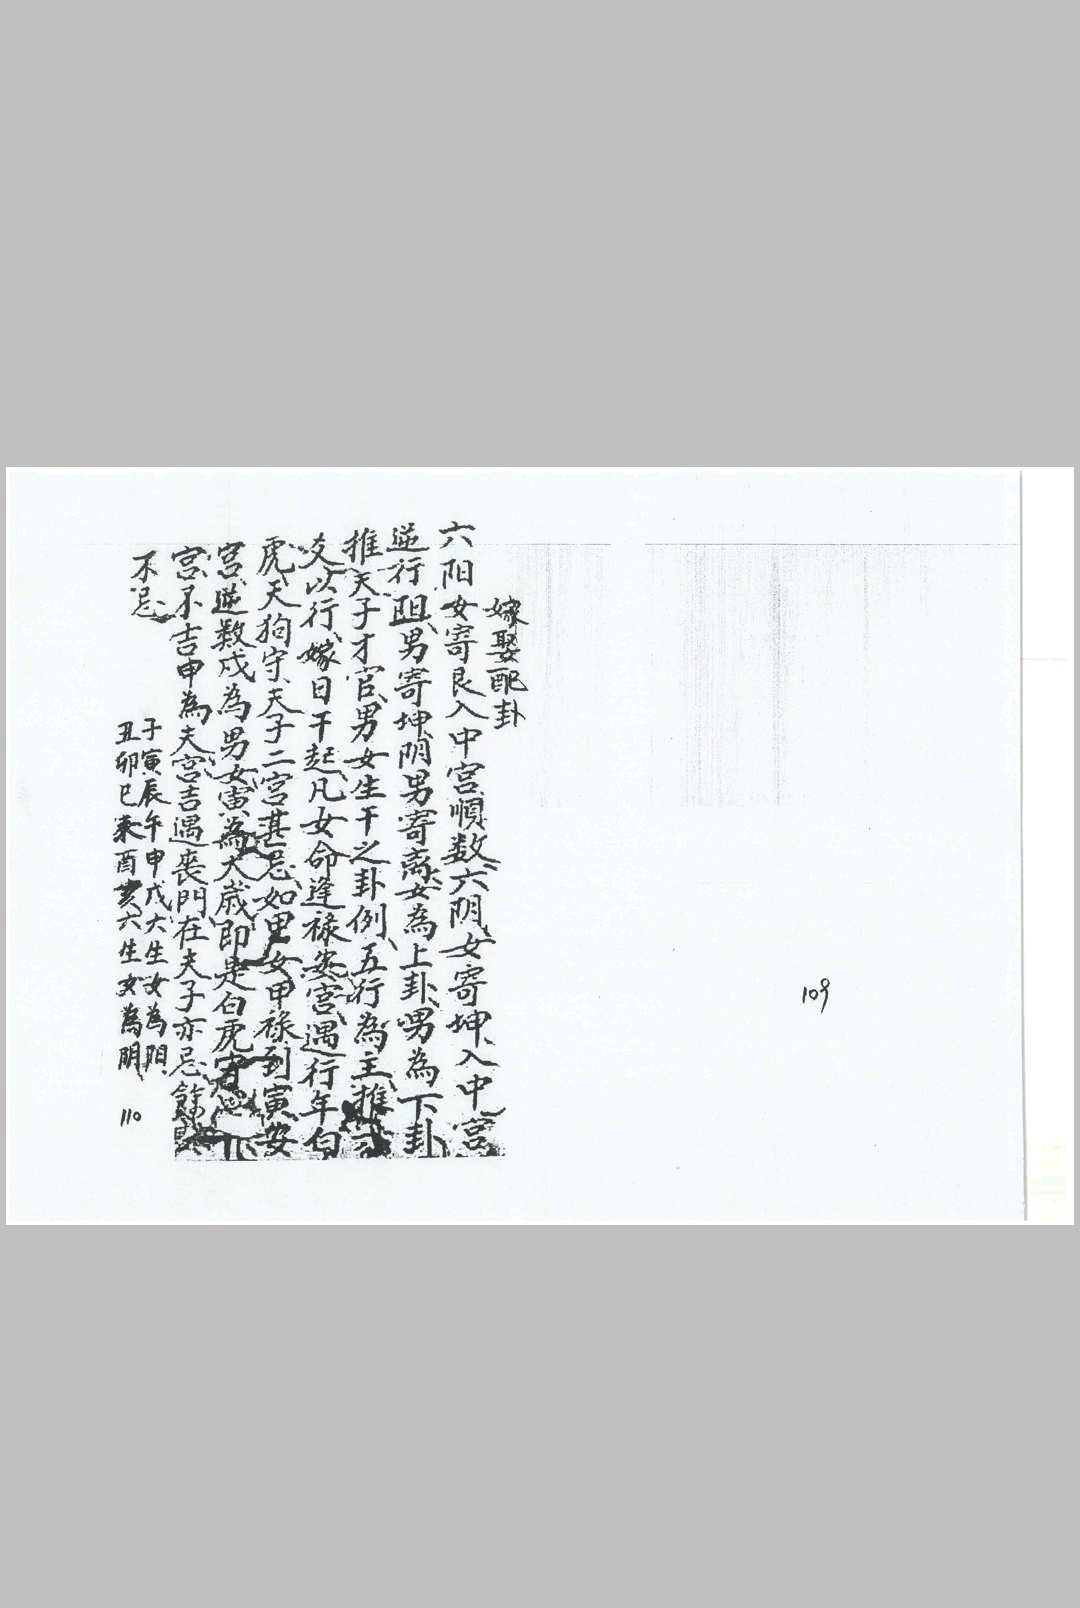 109
嫁娶配卦
六阳女寄艮入中宫順数六阴女寄坤入中宫
逆行阻男寄坤阴男寄离女為上卦男為下卦
推天子才官男女生干之卦例五行為主推
爻以行嫁日干起凡女命逢禄安宫遇行年白
虎天狗守夫子二宫甚忌如甲女甲禄到寅安
宫逆数戍為男女寅為大歳即是白虎守
宫不吉申為夫宫吉遇喪門在夫子亦忌餘
不忌
子寅辰午申戍六生女為阳
丑卯巳未酉亥六生女為阴
110